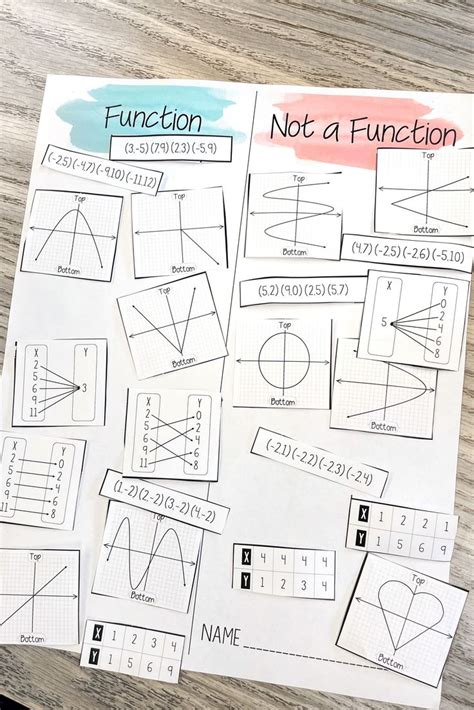 Function
(3,-5)(7,9)(2,3)(-5,9)
(-2,5)(-4,7)(-9,10)(-11,12)
Top
Bottom
Top
Bottom
Top
Bottom
X Y
2
5
6
9
11
3
X Y
2
5
6
9
11
0
2
4
6
8
X Y
2
5
6
9
11
0
2
4
6
8
(1,-2)(2,-2)(3,-2)(4,-2)
Top
Bottom
Top
Bottom
X 1 2 3 4
Y 1 5 6 9
Not a Function
Top
Bottom
Top
Bottom
(4,7)(-2,5)(-2,6)(-5,10)
(5,2)(9,0)(2,5)(5,7)
X Y
5
0
2
4
6
8
Top
Bottom
Top
Bottom
(-2,1)(-2,2)(-2,3)(-2,4)
X 1 2 2 1
Y 1 5 6 9
X 4 4 4 4
Y 1 2 3 4
Top
Bottom
NAME